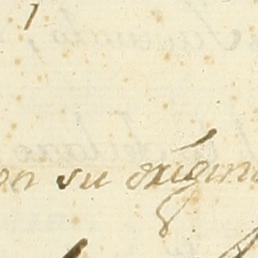 en su origina